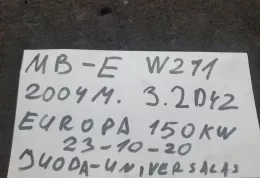 MB-E W211
2004M. 3.2D42
EUROPA 150KW
23-10-20
JUODA-UNIVERSALAS